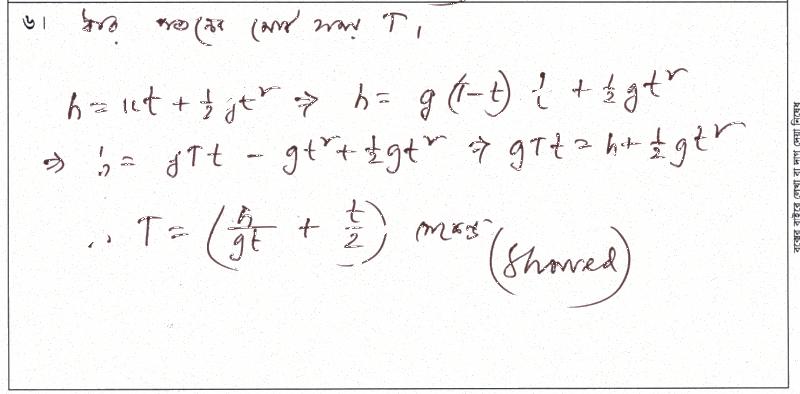 ৬। ধরি পতনের মোট সময় T,
h = ut + ½gt² ⇒ h = g (T-t) t + ½gt²
⇒ h = gTt - gt² + ½gt² ⇒ gTt = h + ½gt²
∴ T = (h/gt + t/2) সেকেন্ড (Showed)
বক্সের বাইরে লেখা বা দাগ দেয়া নিষেধ